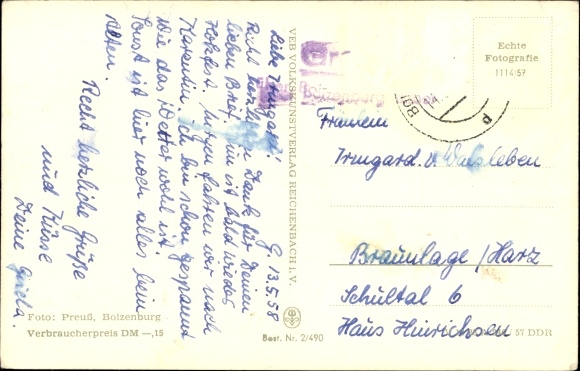 G. 13.5.58
Liebe Irmgard!
Recht herzlichen Dank für Deinen
lieben Brief. Nun ist bald wieder
Morgen fahren wir nach
ich bin schon gespannt
wie das Wetter wohl ist.
Sonst ist hier noch alles beim
Alten.
Recht herzliche Grüße
und Küsse
Deine
Foto: Preuß, Boizenburg
Verbraucherpreis DM —,15
VEB VOLKSKUNSTVERLAG REICHENBACH I. V.
Best. Nr. 2/490
Boizenburg
BOI
Echte
Fotografie
11 14 57
Fräulein
Irmgard v.
Braunlage / Harz
Schultal 6
Haus Hinrichsen
57 DDR